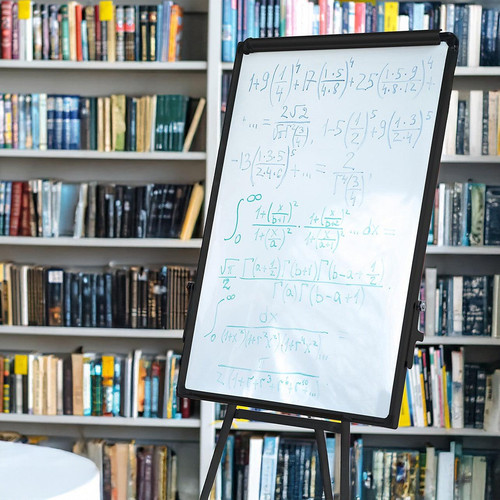 1+9(1/4)^4+17(1·5/4·8)^4+25(1·5·9/4·8·12)^4+
...=2√2/√π Γ²(3/4), 1-5(1/2)^5+9(1·3/2·4)^5
-13(1·3·5/2·4·6)^5+...=2/Γ⁴(3/4)
∫₀^∞ 1+(x/b+1)²/1+(x/a)² · 1+(x/b+2)²/1+(x/a+1)² ... dx=
√π/2 Γ(a+1/2)Γ(b+1)Γ(b-a+1/2)/Γ(a)Γ(b-a+1)
∫₀^∞ dx/(1+x²)(1+r²x²)(1+r⁴x²)...